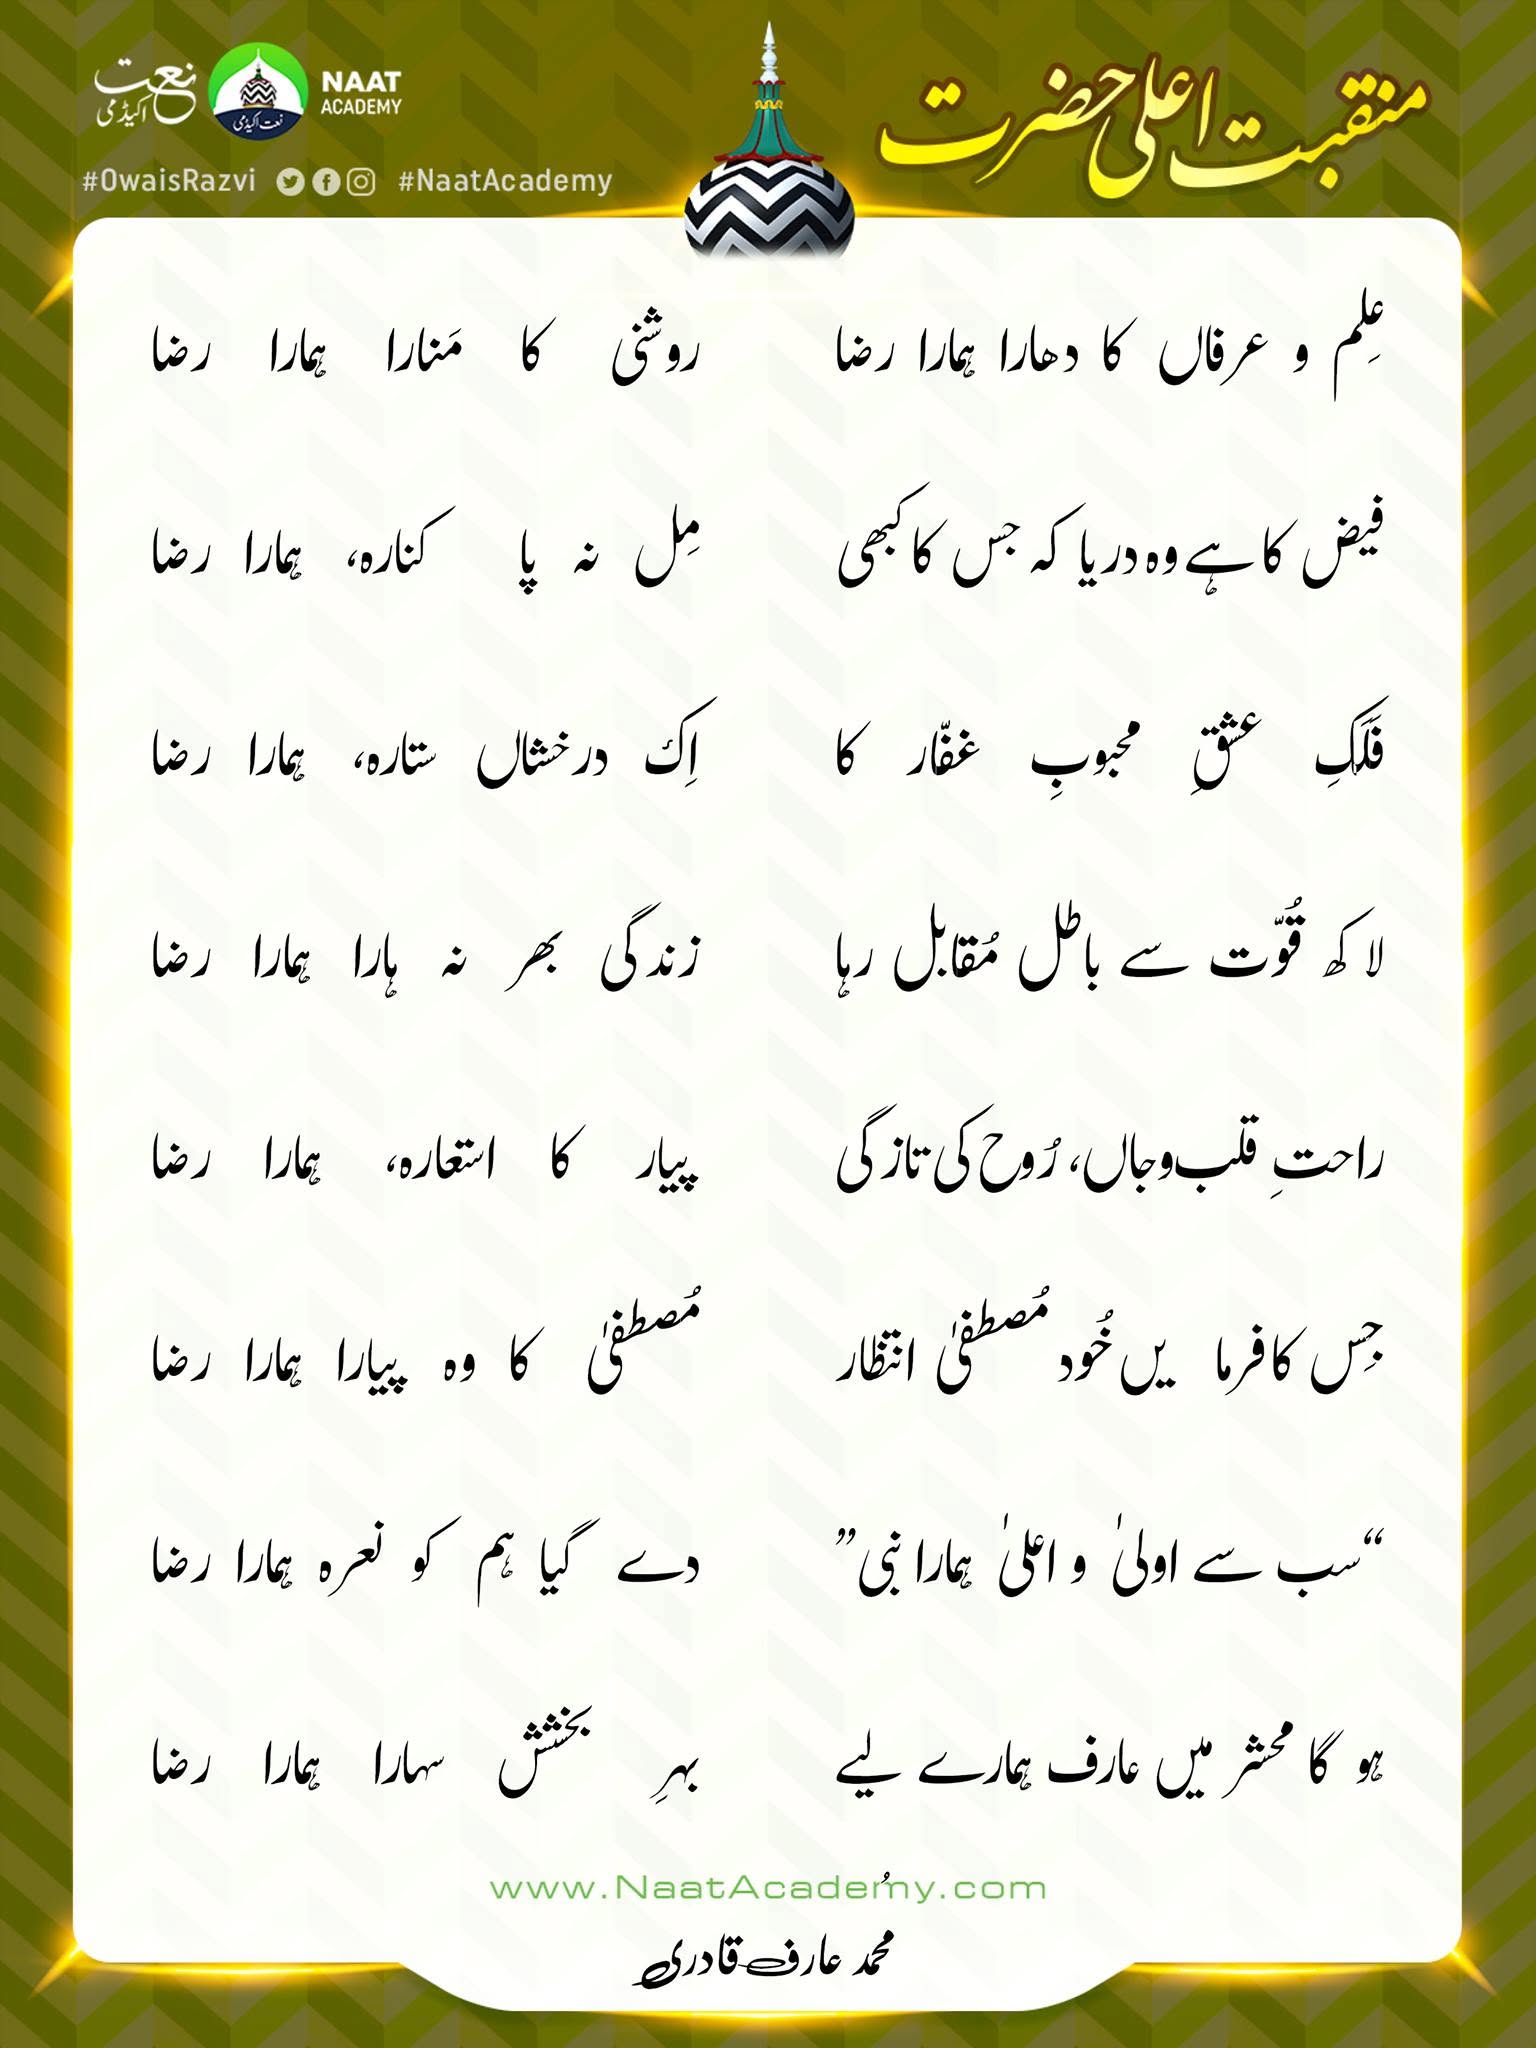 نعت اکیڈمی
نعت اکیڈمی
NAAT
ACADEMY
#OwaisRazvi #NaatAcademy
منقبت اعلیٰ حضرت
عِلم و عرفاں کا دھارا ہمارا رضا روشنی کا مَنارا ہمارا رضا
فیض کا ہے وہ دریا کہ جس کا کبھی مِل نہ پا کنارہ، ہمارا رضا
فَلَکِ عشقِ محبوبِ غفّار کا اِک درخشاں ستارہ، ہمارا رضا
لاکھ قُوّت سے باطل مُقابل رہا زندگی بھر نہ ہارا ہمارا رضا
راحتِ قلب و جاں، رُوح کی تازگی پیار کا استعارہ، ہمارا رضا
جِس کا فرمایں خُود مُصطفیٰ انتظار مُصطفیٰ کا وہ پیارا ہمارا رضا
“سب سے اولیٰ و اعلیٰ ہمارا نبی” دے گیا ہم کو نعرہ ہمارا رضا
ہو گا محشر میں عارف ہمارے لیے بہرِ بخشش سہارا ہمارا رضا
www.NaatAcademy.com
محمد عارف قادری